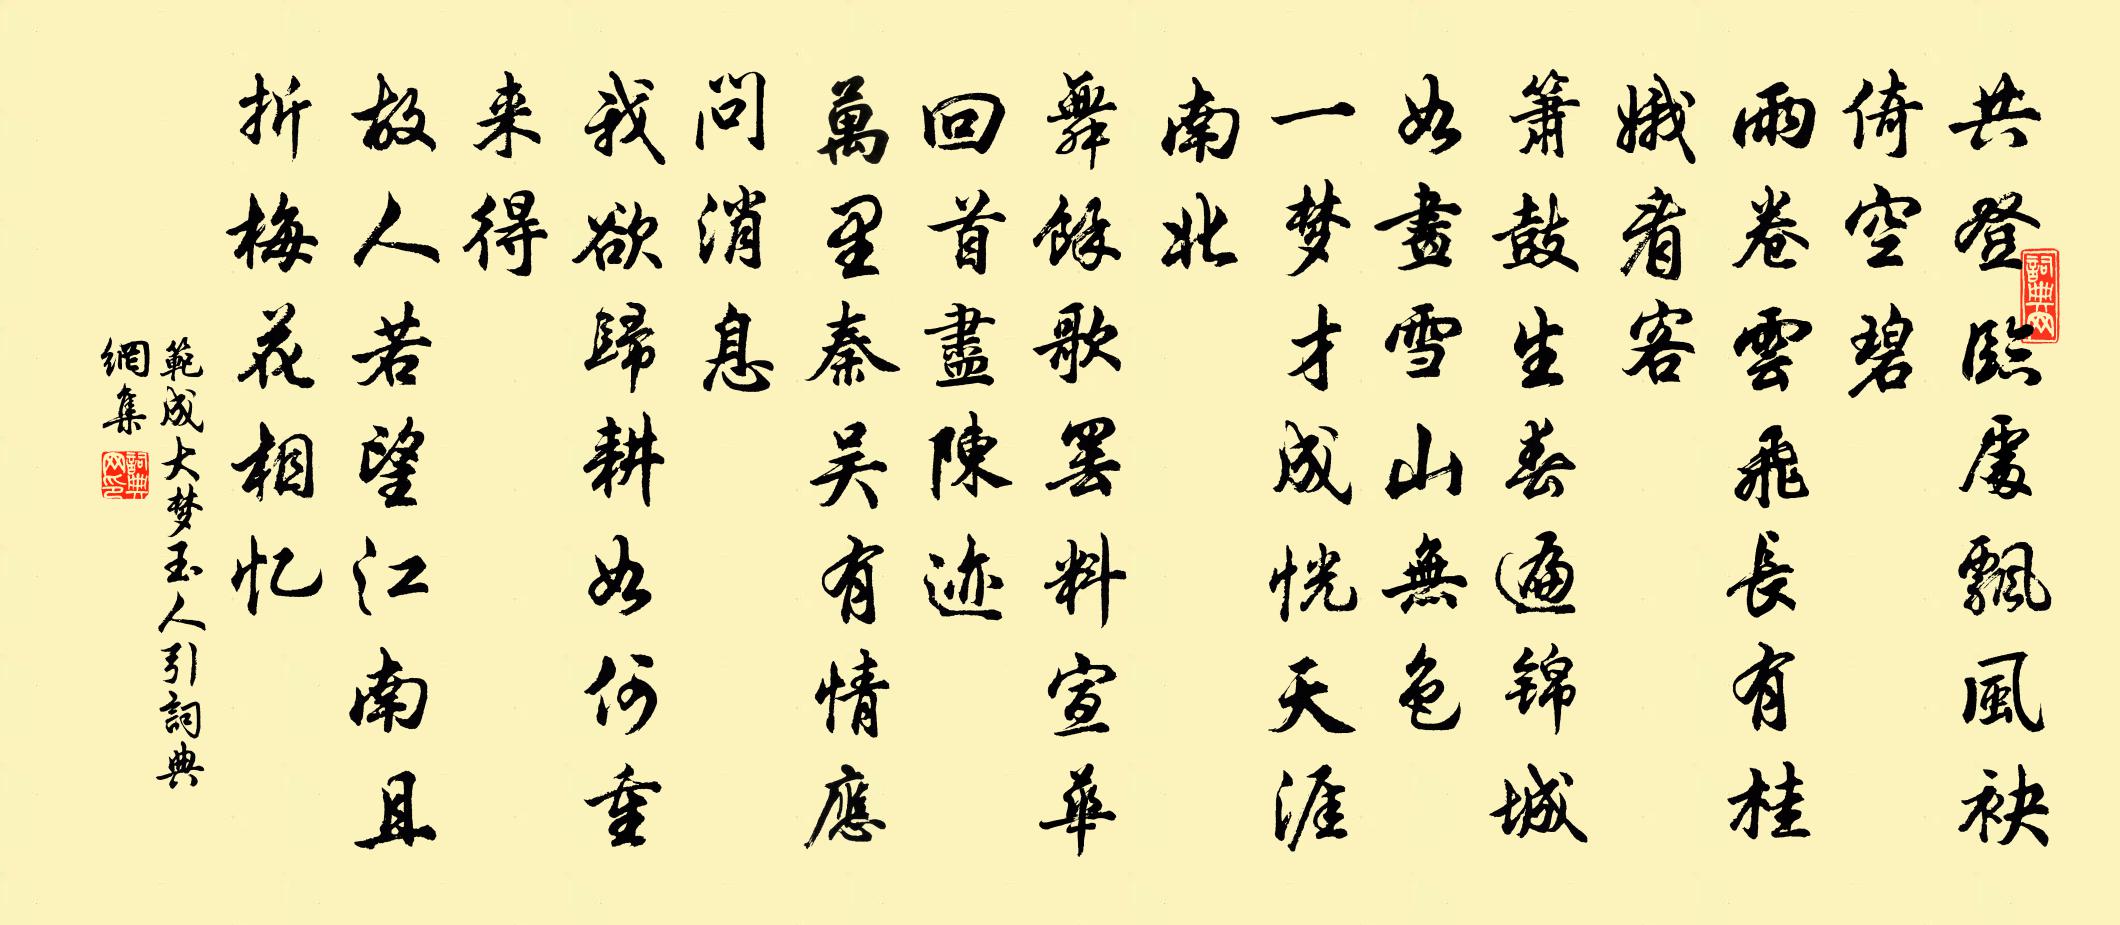 共登臨處飄風袂
倚空碧
雨卷雲飛長有桂
娥看客
簫鼓生春遍锦城
如畫雪山無色
一梦才成恍天涯
南北
舞餘歌罢料宣華
回首盡陳迹
萬里秦吴有情應
問消息
我欲歸耕如何重
来得
故人若望江南且
折梅花相忆
範成大梦玉人引詞典
網集
詞典网
詞典网印